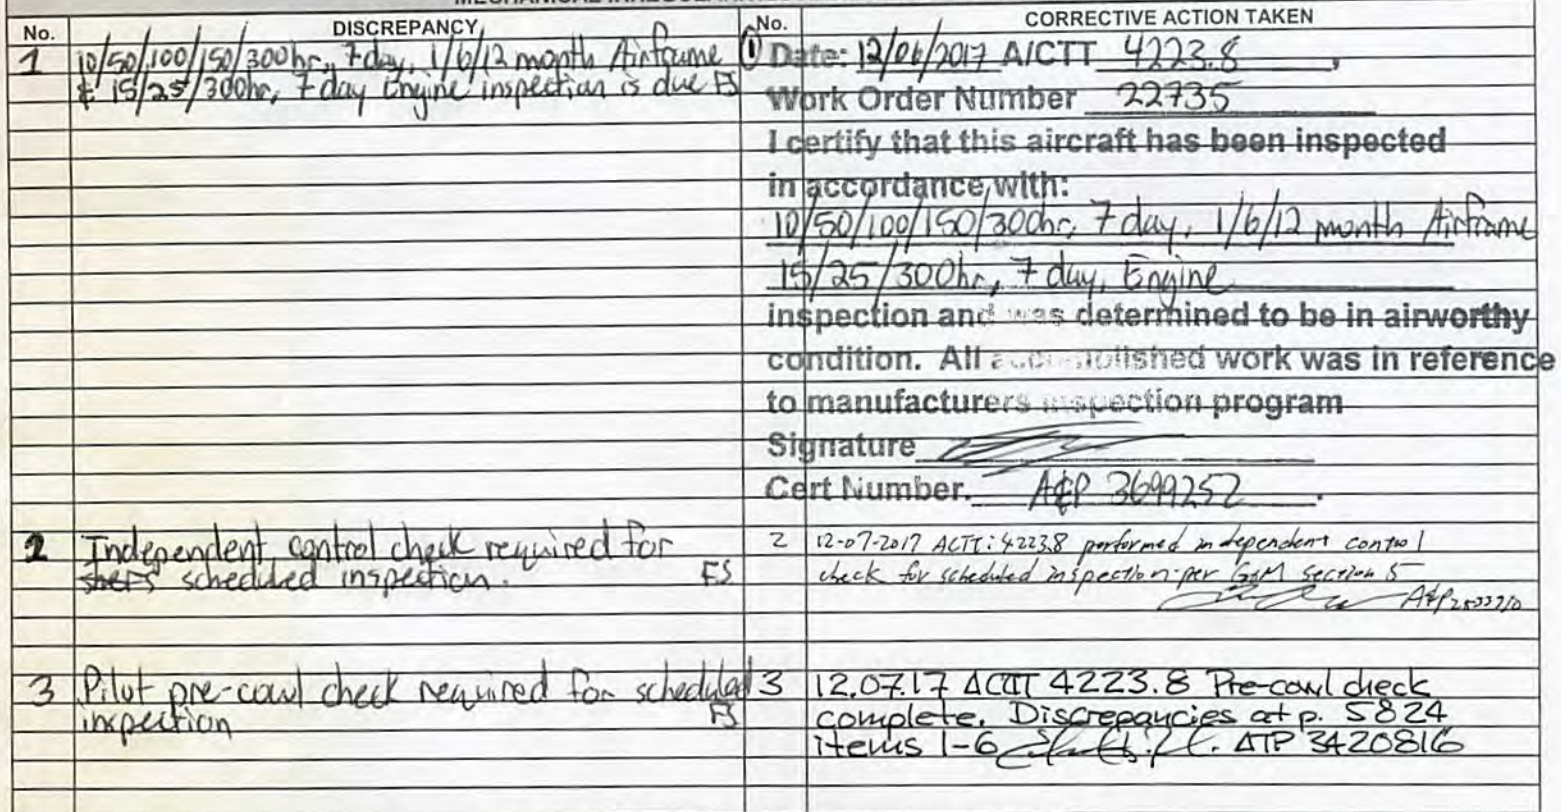 No. DISCREPANCY No. CORRECTIVE ACTION TAKEN
1 10/50/100/150/300hr., 7day, 1/6/12 month Airframe
& 15/25/300hr, 7 day Engine inspection is due FS
1 Date: 12/06/2017 A/CTT 4223.8,
Work Order Number 22735
I certify that this aircraft has been inspected
in accordance with:
10/50/100/150/300hr, 7 day, 1/6/12 month Airframe
15/25/300hr, 7 day, Engine
inspection and was determined to be in airworthy
condition. All accomplished work was in reference
to manufacturers inspection program
Signature
Cert Number. A&P 3699252.
2 Independent control check required for
scheduled inspection. FS
2 12-07-2017 ACTT: 4223.8 performed independent control
check for scheduled inspection per GMM section 5
A&P
3 Pilot pre-cowl check required for scheduled
inspection FS
3 12.07.17 ACTT 4223.8 Pre-cowl check
complete. Discrepancies at p. 5824
items 1-6 ATP 3420816